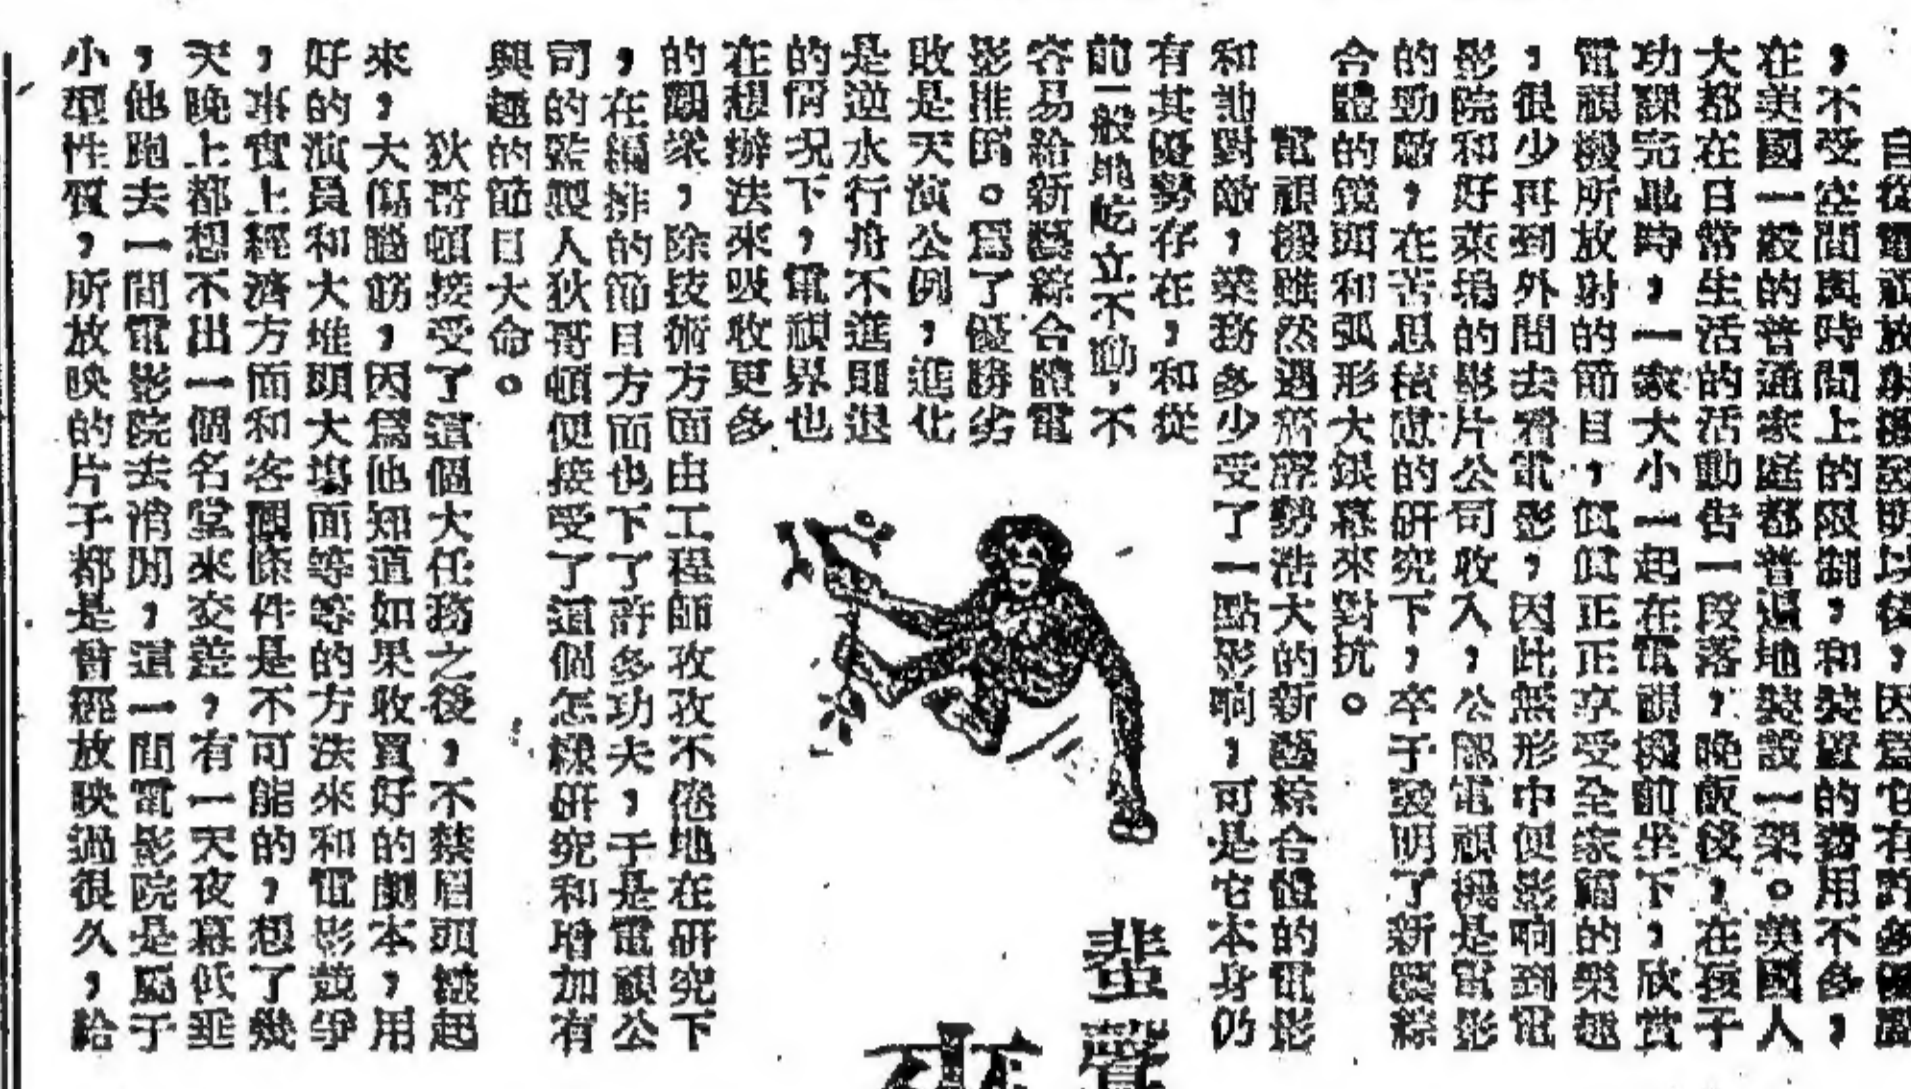 自從電視放射機發明以後，因為它有許多優點
，不受空間與時間上的限制，和裝置的費用不多，
在美國一般的普通家庭都普遍地裝設一架。美國人
大都在日常生活的活動告一段落，晚飯後，在孩子
功課完畢時，一家大小一起在電視機前坐下，欣賞
電視機所放射的節目，眞眞正正享受全家福的樂趣
，很少再到外間去看電影，因此無形中便影响到電
影院和好萊塢的影片公司收入，公認電視機是電影
的勁敵，在苦思積慮的研究下，卒于發明了新藝綜
合體的鏡頭和弧形大銀幕來對抗。
電視機雖然遇着浮勢浩大的新藝綜合體的電影
和牠對敵，業務多少受了一點影响，可是它本身仍
有其優勢存在，和從
前一般地屹立不動，不
容易給新藝綜合體電
影推倒。爲了優勝劣
敗是天演公例，進化
是逆水行舟不進則退
的情况下，電視界也
在想辦法來吸收更多
的觀衆，除技術方面由工程師孜孜不倦地在研究下
，在編排的節目方面也下了許多功夫，于是電視公
司的監製人狄哥頓便接受了這個怎樣研究和增加有
興趣的節目大命。
狄哥頓接受了這個大任務之後，不禁眉頭皺起
來，大傷腦筋，因爲他知道如果收買好的劇本，用
好的演員和大堆頭大塲面等等的方法來和電影競爭
，事實上經濟方面和客觀條件是不可能的，想了幾
天晚上都想不出一個名堂來交差，有一天夜幕低垂
，他跑去一間電影院去消閒，這一間電影院是屬于
小型性質，所放映的片子都是曾經放映過很久，給
蜚聲